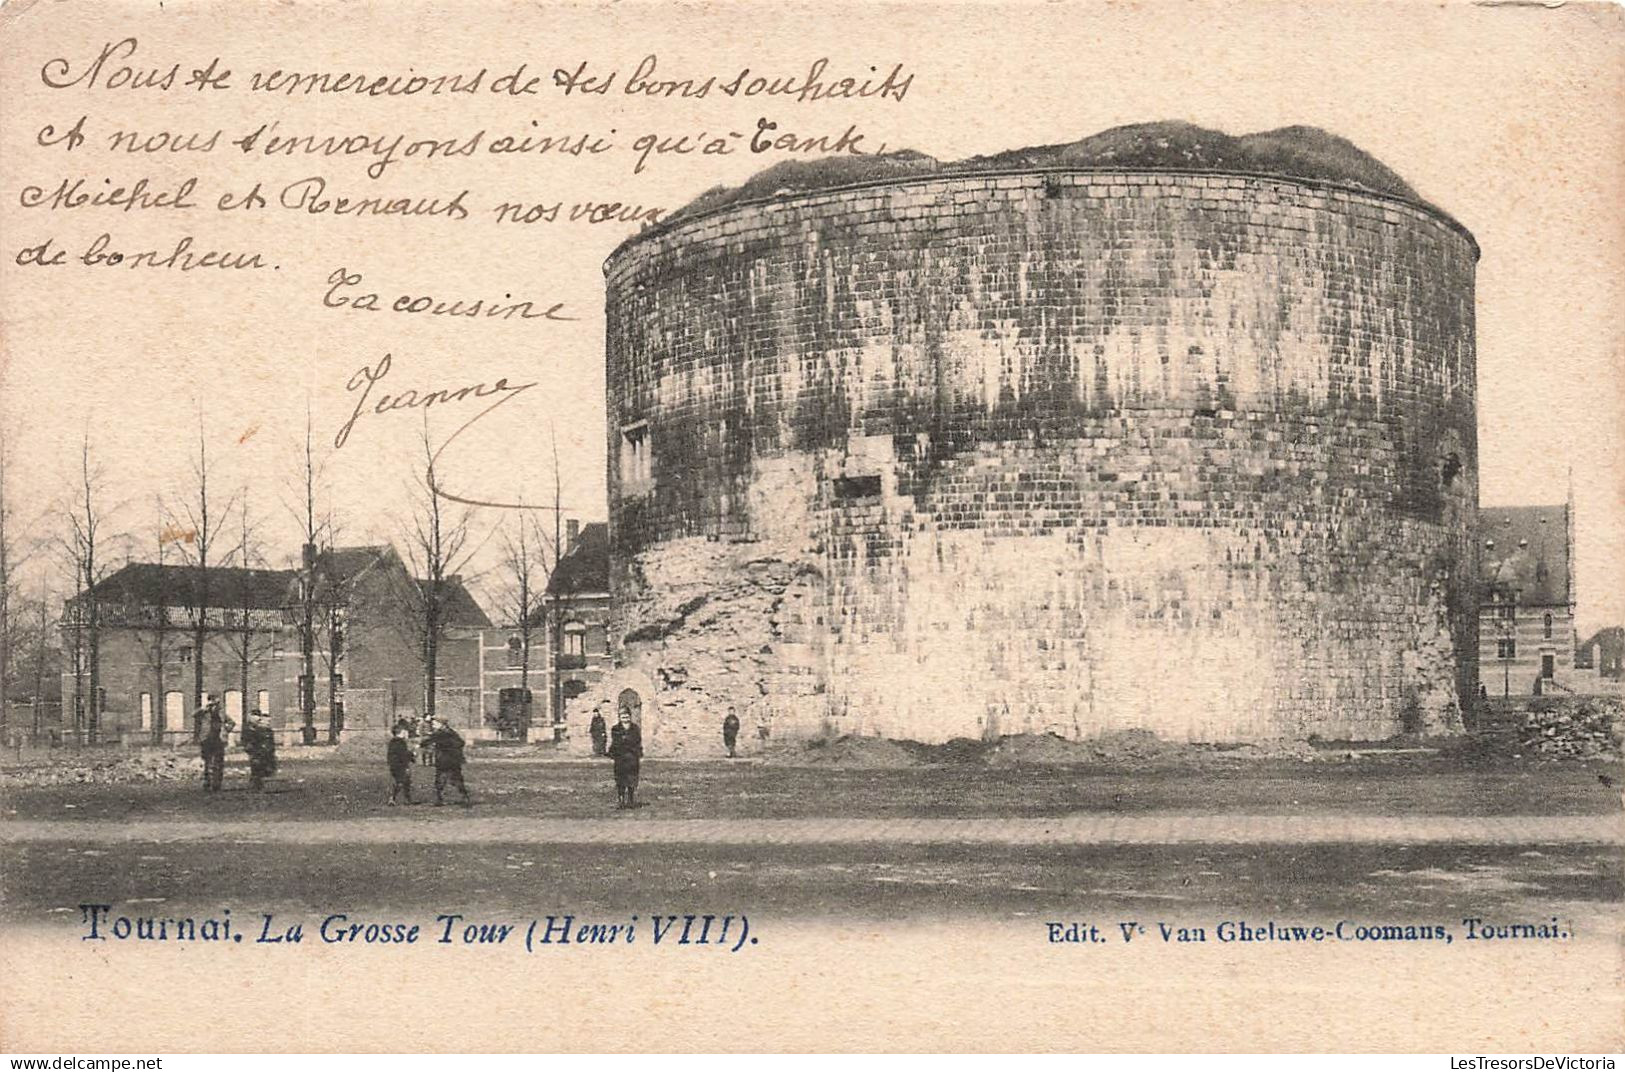 Nous te remercions de tes bons souhaits
et nous t'envoyons ainsi qu'à Tante,
Michel et Renaut nos vœux
de bonheur.
Ta cousine
Jeanne
Tournai. La Grosse Tour (Henri VIII).
Edit. Ve Van Gheluwe-Coomans, Tournai.
delcampe.net
LesTresorsDeVictoria